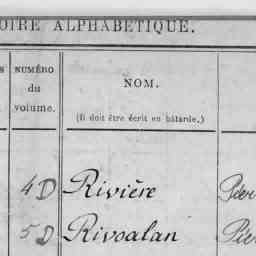 OIRE ALPHABÉTIQUE.
S NUMÉRO
du
volume.
NOM.
(Il doit être écrit en bâtarde.)
4D Rivière
5D Rivoalan Pie